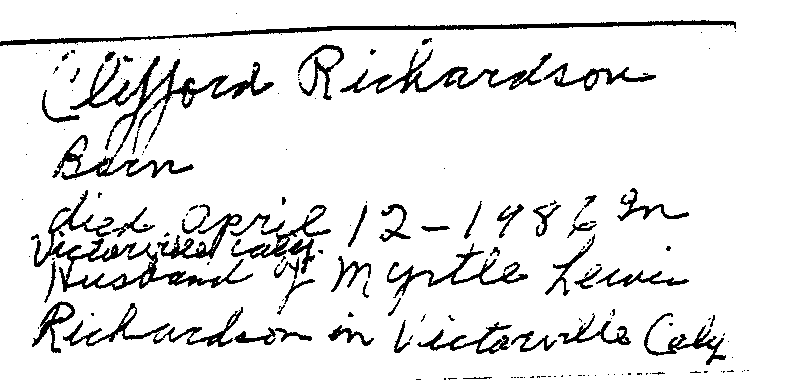 Clifford Richardson
Born
died April 12-1986 In
Victorville Calif.
Husband of Myrtle Lewis
Richardson in Victorville Calif